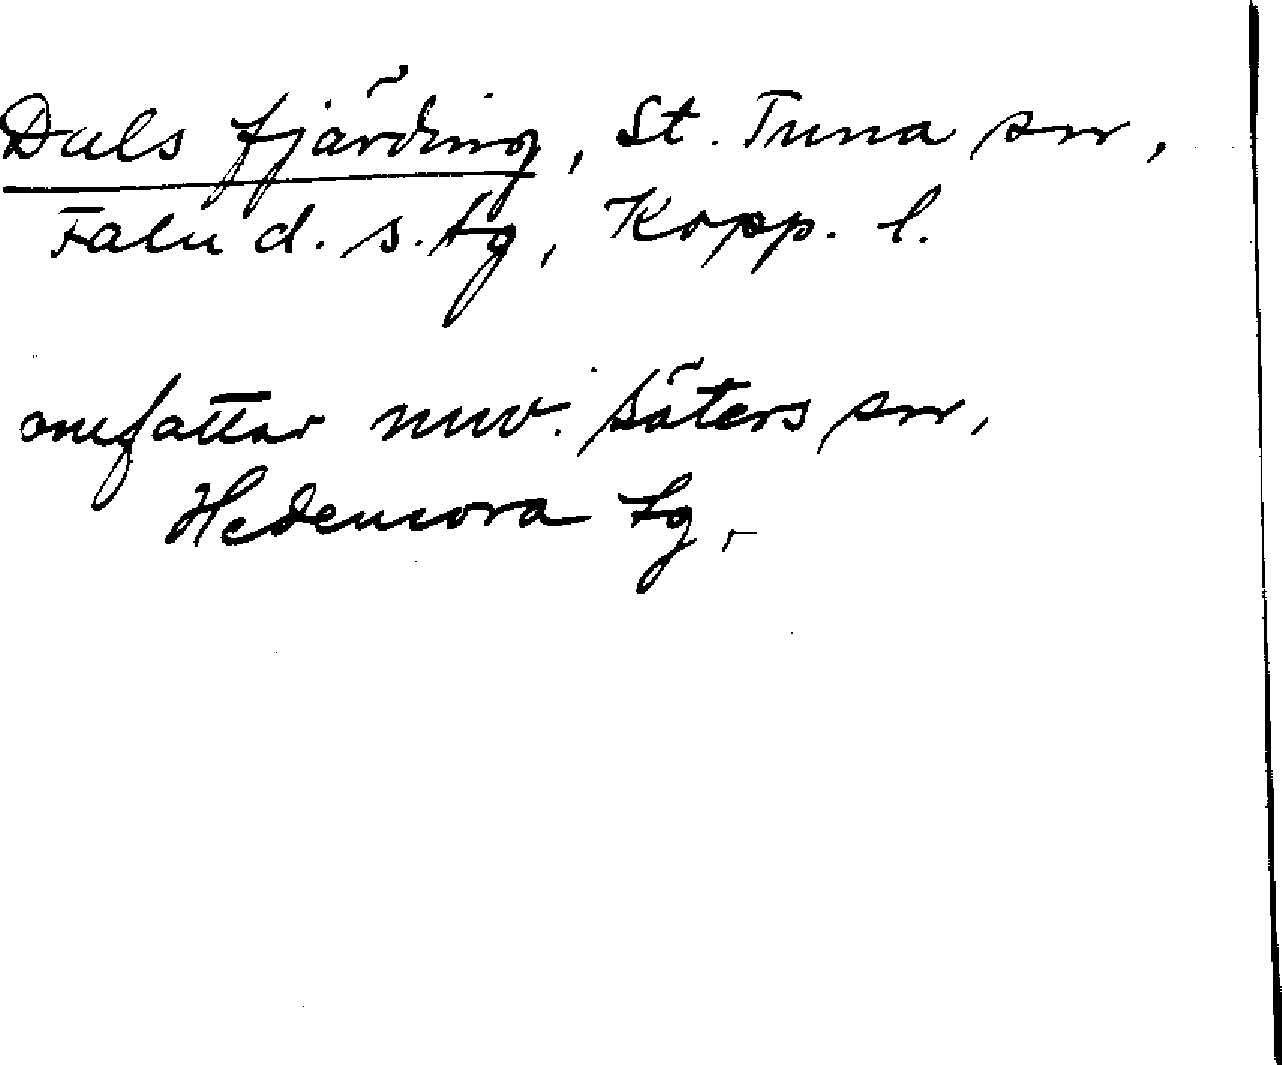 Dals fjärding, St. Tuna sn,
Falu d. s. tg, Kopp. l.
omfattar nuv. Säters sn,
Hedemora tg.